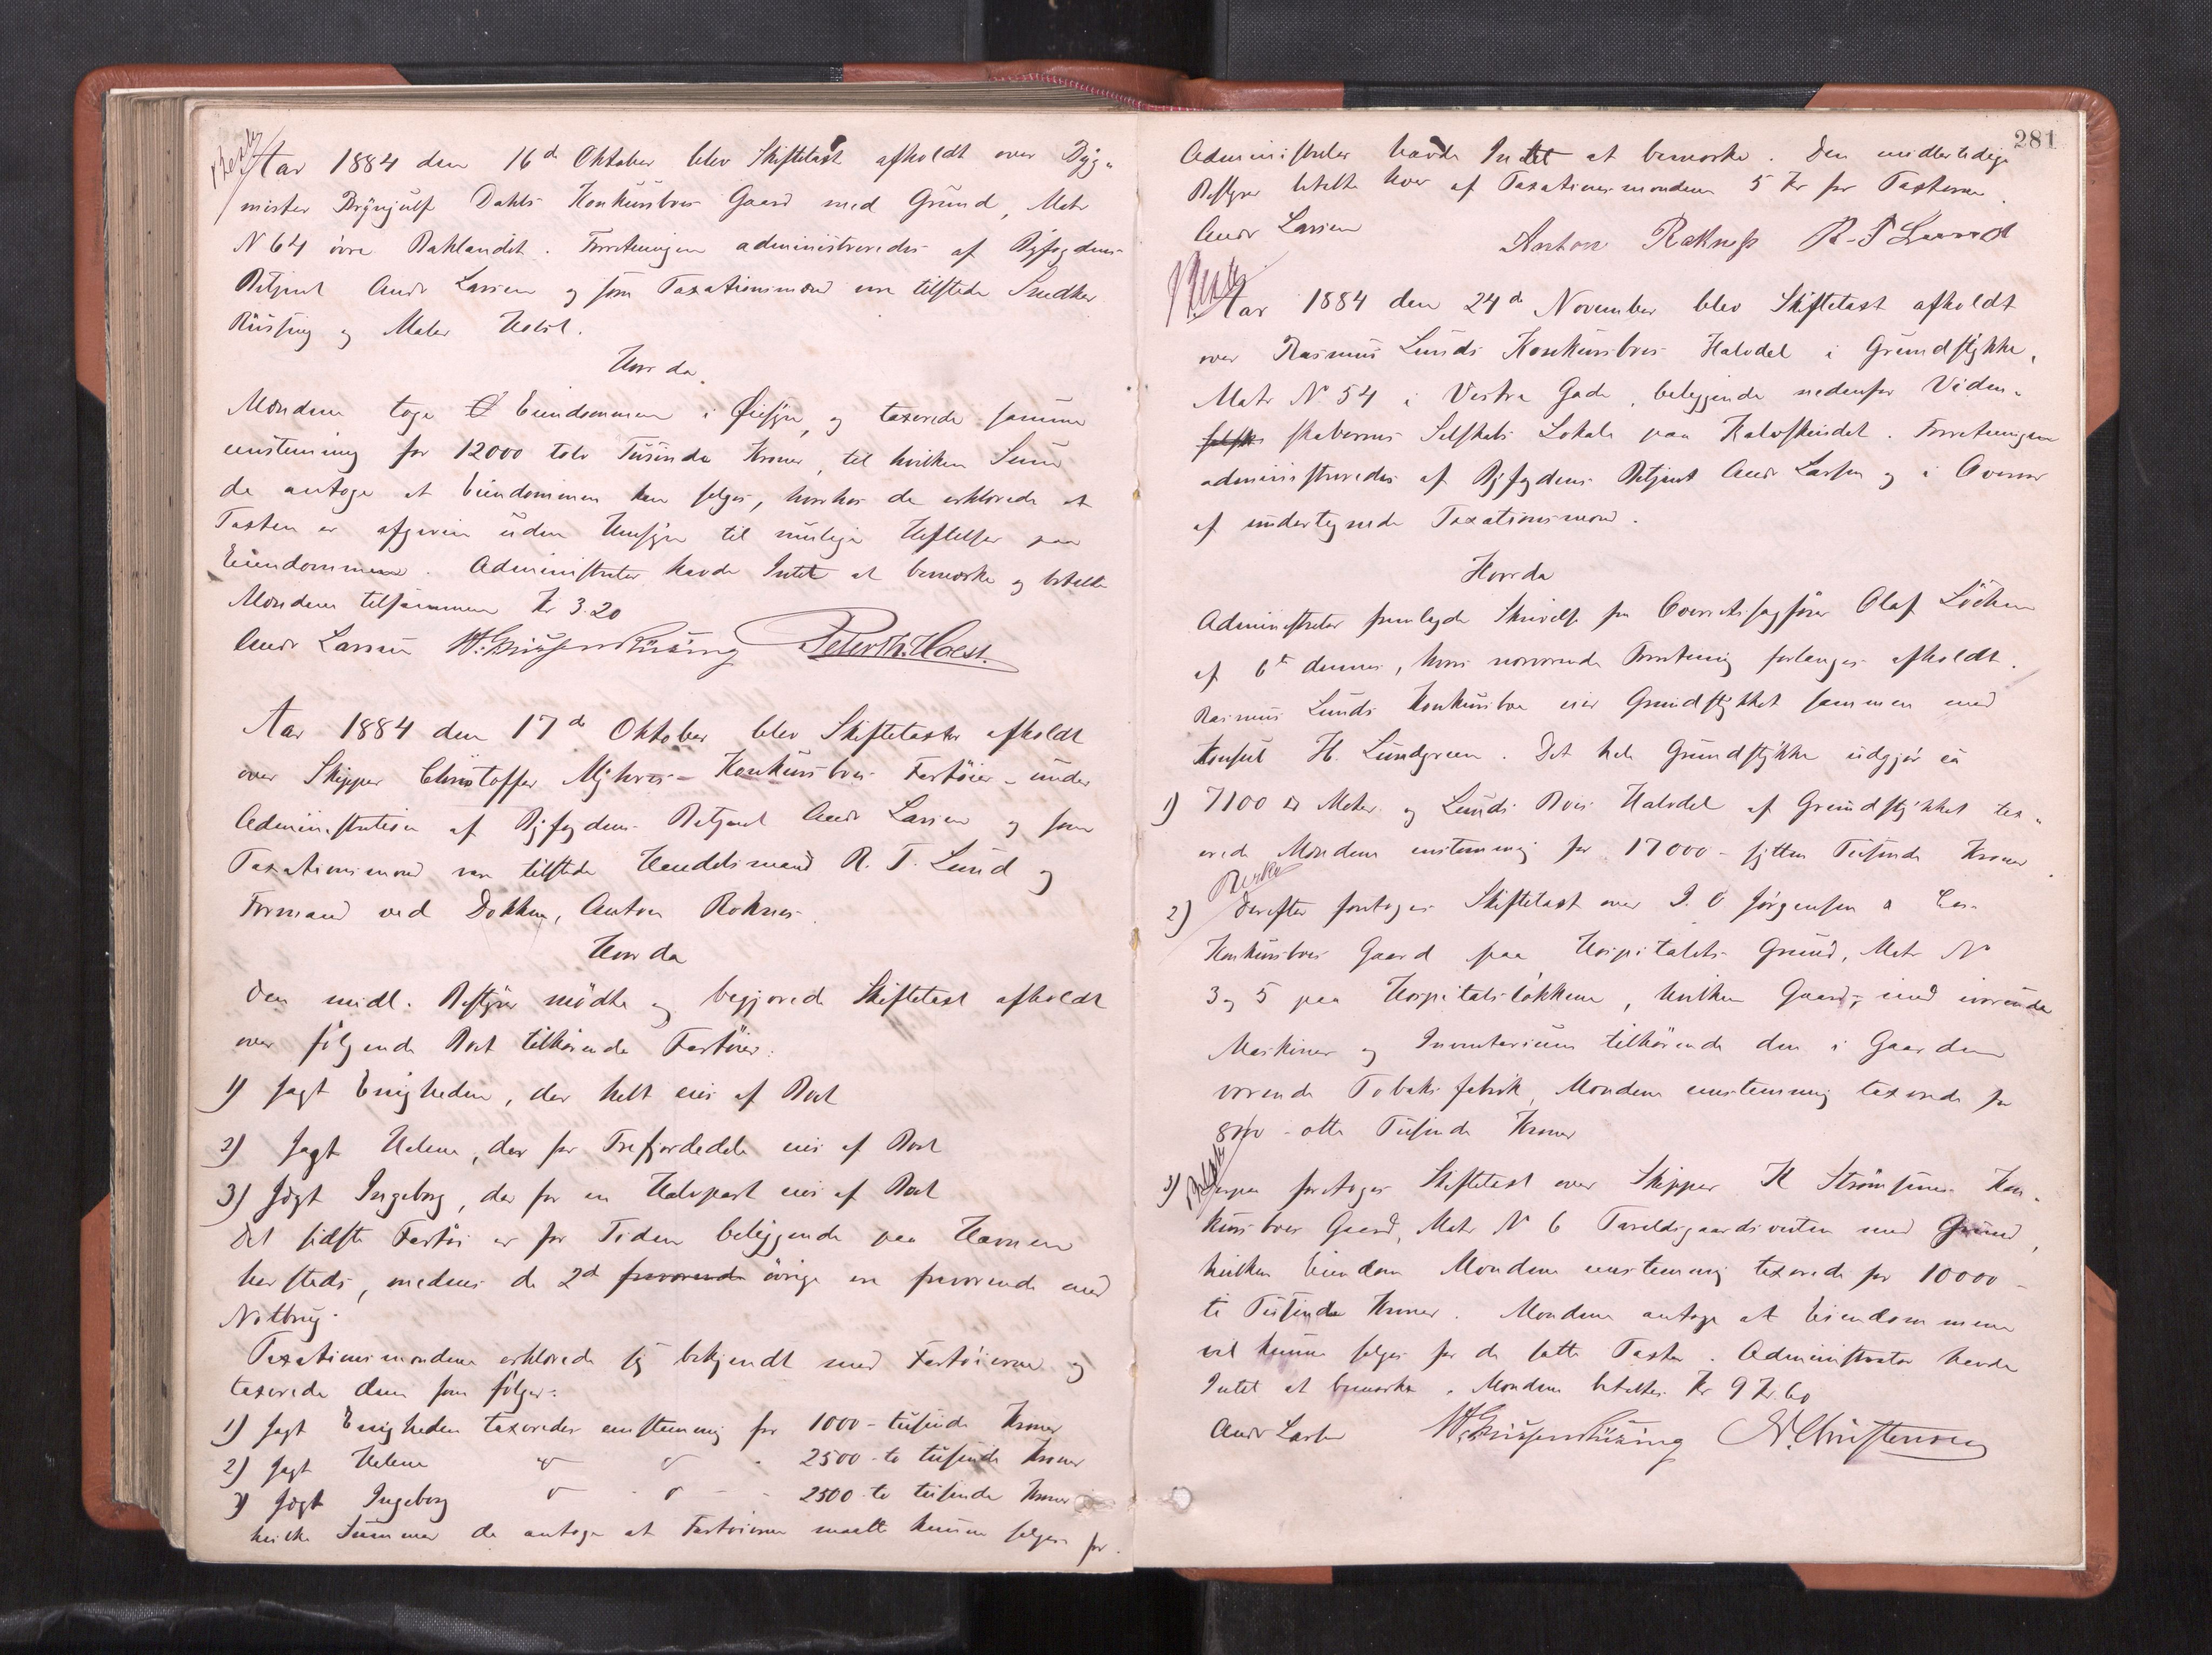 Aar 1884 den 16de Oktober blev Skiftetaxt afholdt over Byg-
mester Brynjulf Dahls Konkursboes Gaard med Grund, Matr
N 64 övre Baklandet. Forretningen administreredes af Byfogdens
Betjent Andr Larsen og som Taxationsmænd vare tilstede Snedker
Rüsing og Maler Holst.
Hvorda
Mændene toge Eiendommen i Øiesyn og taxerede samme
enstemmig for 12000 tolv Tusinde Kroner, til hvilken Sum
de antoge at Eiendommen kan selges, hvorhos de erklærede at
Taxten er afgiven uden Hensyn til mulige Heftelser paa
Eiendommen. Administrator havde Intet at bemærke og betalte
Mændene tilsammen Kr 3.20
Andr Larsen Peter Th. Holst.
Aar 1884 den 17de Oktober blev Skiftetaxter afholdt
over Skipper Christoffer Myhres Konkursboes Fartöier under
Administration af Byfogdens Betjent Andr Larsen og som
Taxationsmænd vare tilstede Handelsmand R. T. Lund og
Formand ved Dokken, Anton Roknes.
Hvorda
Den midl. Bestyrer mödte og begjærede Skiftetaxt afholdt
over fölgende Boet tilhörende Fartöier:
1) Jagt Enigheden, der helt eies af Boet
2) Jagt Helene, der for Trefjerdedele eies af Boet
3) Jagt Ingeborg, der for en Halvpart eies af Boet
Det sidste Fartöi er for Tiden beliggende paa Havnen
hersteds, medens de 2de fraværende övrige ere fraværende med
Notbrug.
Taxationsmændene erklærede sig bekjendt med Fartöierne og
taxerede dem som fölger:
1) Jagt Enigheden taxeredes enstemmig for 1000 - tusinde Kroner
2) Jagt Helene " " - 2500 - to tusinde Kroner
3) Jagt Ingeborg " " - 2500 - to tusinde Kroner
hvilke Summer de antoge at Fartöierne maatte kunne selges for.
281
Administrator havde Intet at bemærke. Den midlertidige
Bestyrer betalte hver af Taxationsmændene 5 Kr for Taxterne.
Andr Larsen Anton Rokness R. T Lund
Aar 1884 den 24de November blev Skiftetaxt afholdt
over Rasmus Lunds Konkursboes Halvdel i Grundstykke,
Matr No 54 i Vestre Gade, beliggende nedenfor Viden-
skabernes Selskabs Lokale paa Kalvskindet. Forretningen
administreredes af Byfogdens Betjent Andr Larsen og i Overvær
af undertegnede Taxationsmænd.
Hvorda
Administrator fremlagde Skrivelse fra Overretssagförer Olaf Löchen
af 6te dennes, hvori nærværende Forretning forlanges afholdt.
Rasmus Lunds Konkursbo eier Grundstykket sammen med
Konsul H. Lundgreen. Det hele Grundstykke udgjör ca
1) 7100 □ Meter og Lunds Boes Halvdel af Grundstykket tax-
erede Mændene enstemmig for 17000 - sytten Tusinde Kroner.
2) Derefter foretoges Skiftetaxt over J. O Jörgensen & Co's
Konkursboes Gaard paa Hospitalets Grund, Matr No
3 og 5 paa Hospitalslökken, hvilken Gaard, med iværende
Maskiner og Inventarium tilhörende den i Gaarden
værende Tobaksfabrik, Mændene enstemmig taxerede for
8000 - otte Tusinde Kroner
3) foretoges Skiftetaxt over Skipper K Strömsunes Kon-
kursboes Gaard, Matr No 6 Taveldsgaardsveiten med Grund,
hvilken Eiendom Mændene enstemmig taxerede for 10000 -
ti Tusinde Kroner. Mændene antoge at Eiendommene
vel kunne selges for de satte Taxter. Administrator havde
Intet at bemærke. Mændene betaltes Kr 9 Kr. 60
Andr Larsen Christensen